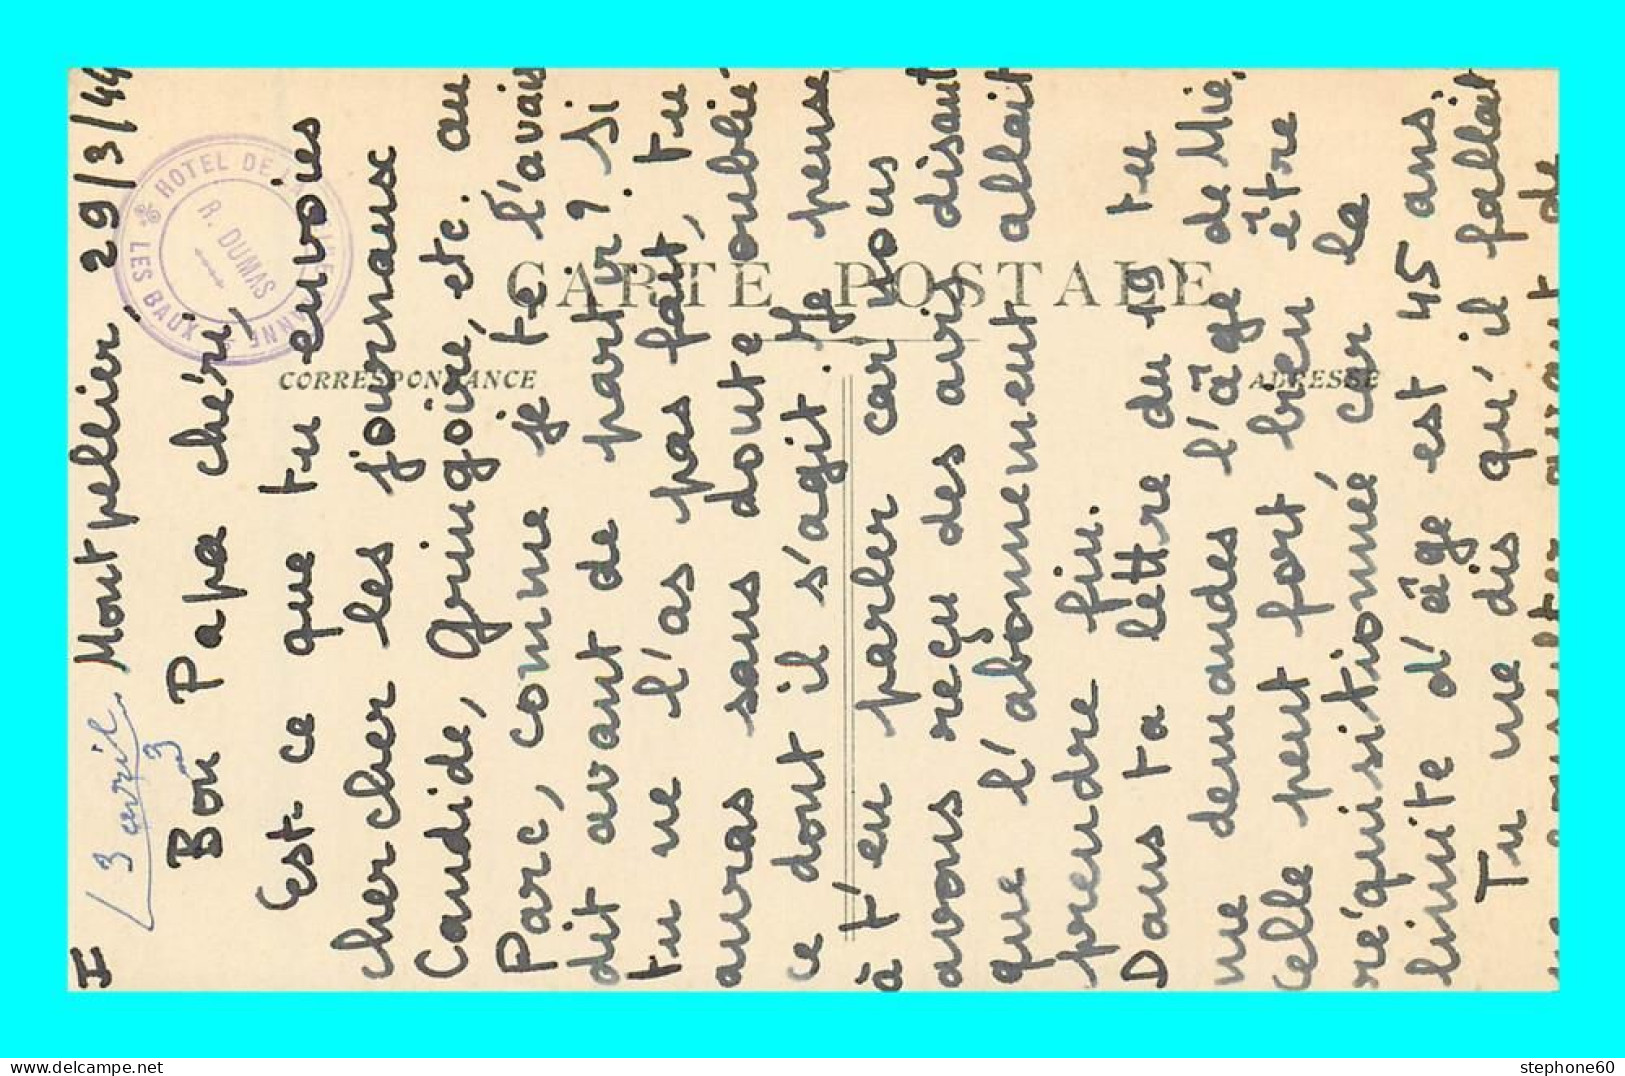 I Montpellier, 29/3/44
3 avril
3
Bon Papa chéri,
Est-ce que tu envoies
chercher les journaux
Candide, Gringoire, etc. au
Parc, comme je te l'avais
dit avant de partir ? Si
tu ne l'as pas fait, tu
auras sans doute oublié
ce dont il s'agit. Je pense
à t'en parler car nous
avons reçu des avis disant
que l'abonnement allait
prendre fin.
Dans ta lettre du 19 tu
me demandes l'âge de Mie,
celle peut fort bien être
réquisitionné car la
limite d'âge est 45 ans.
Tu me dis qu'il fallait
me consulter avant de
HOTEL DE LA
LES BAUX
R. DUMAS
CARTE POSTALE
CORRESPONDANCE
ADRESSE
stephone60